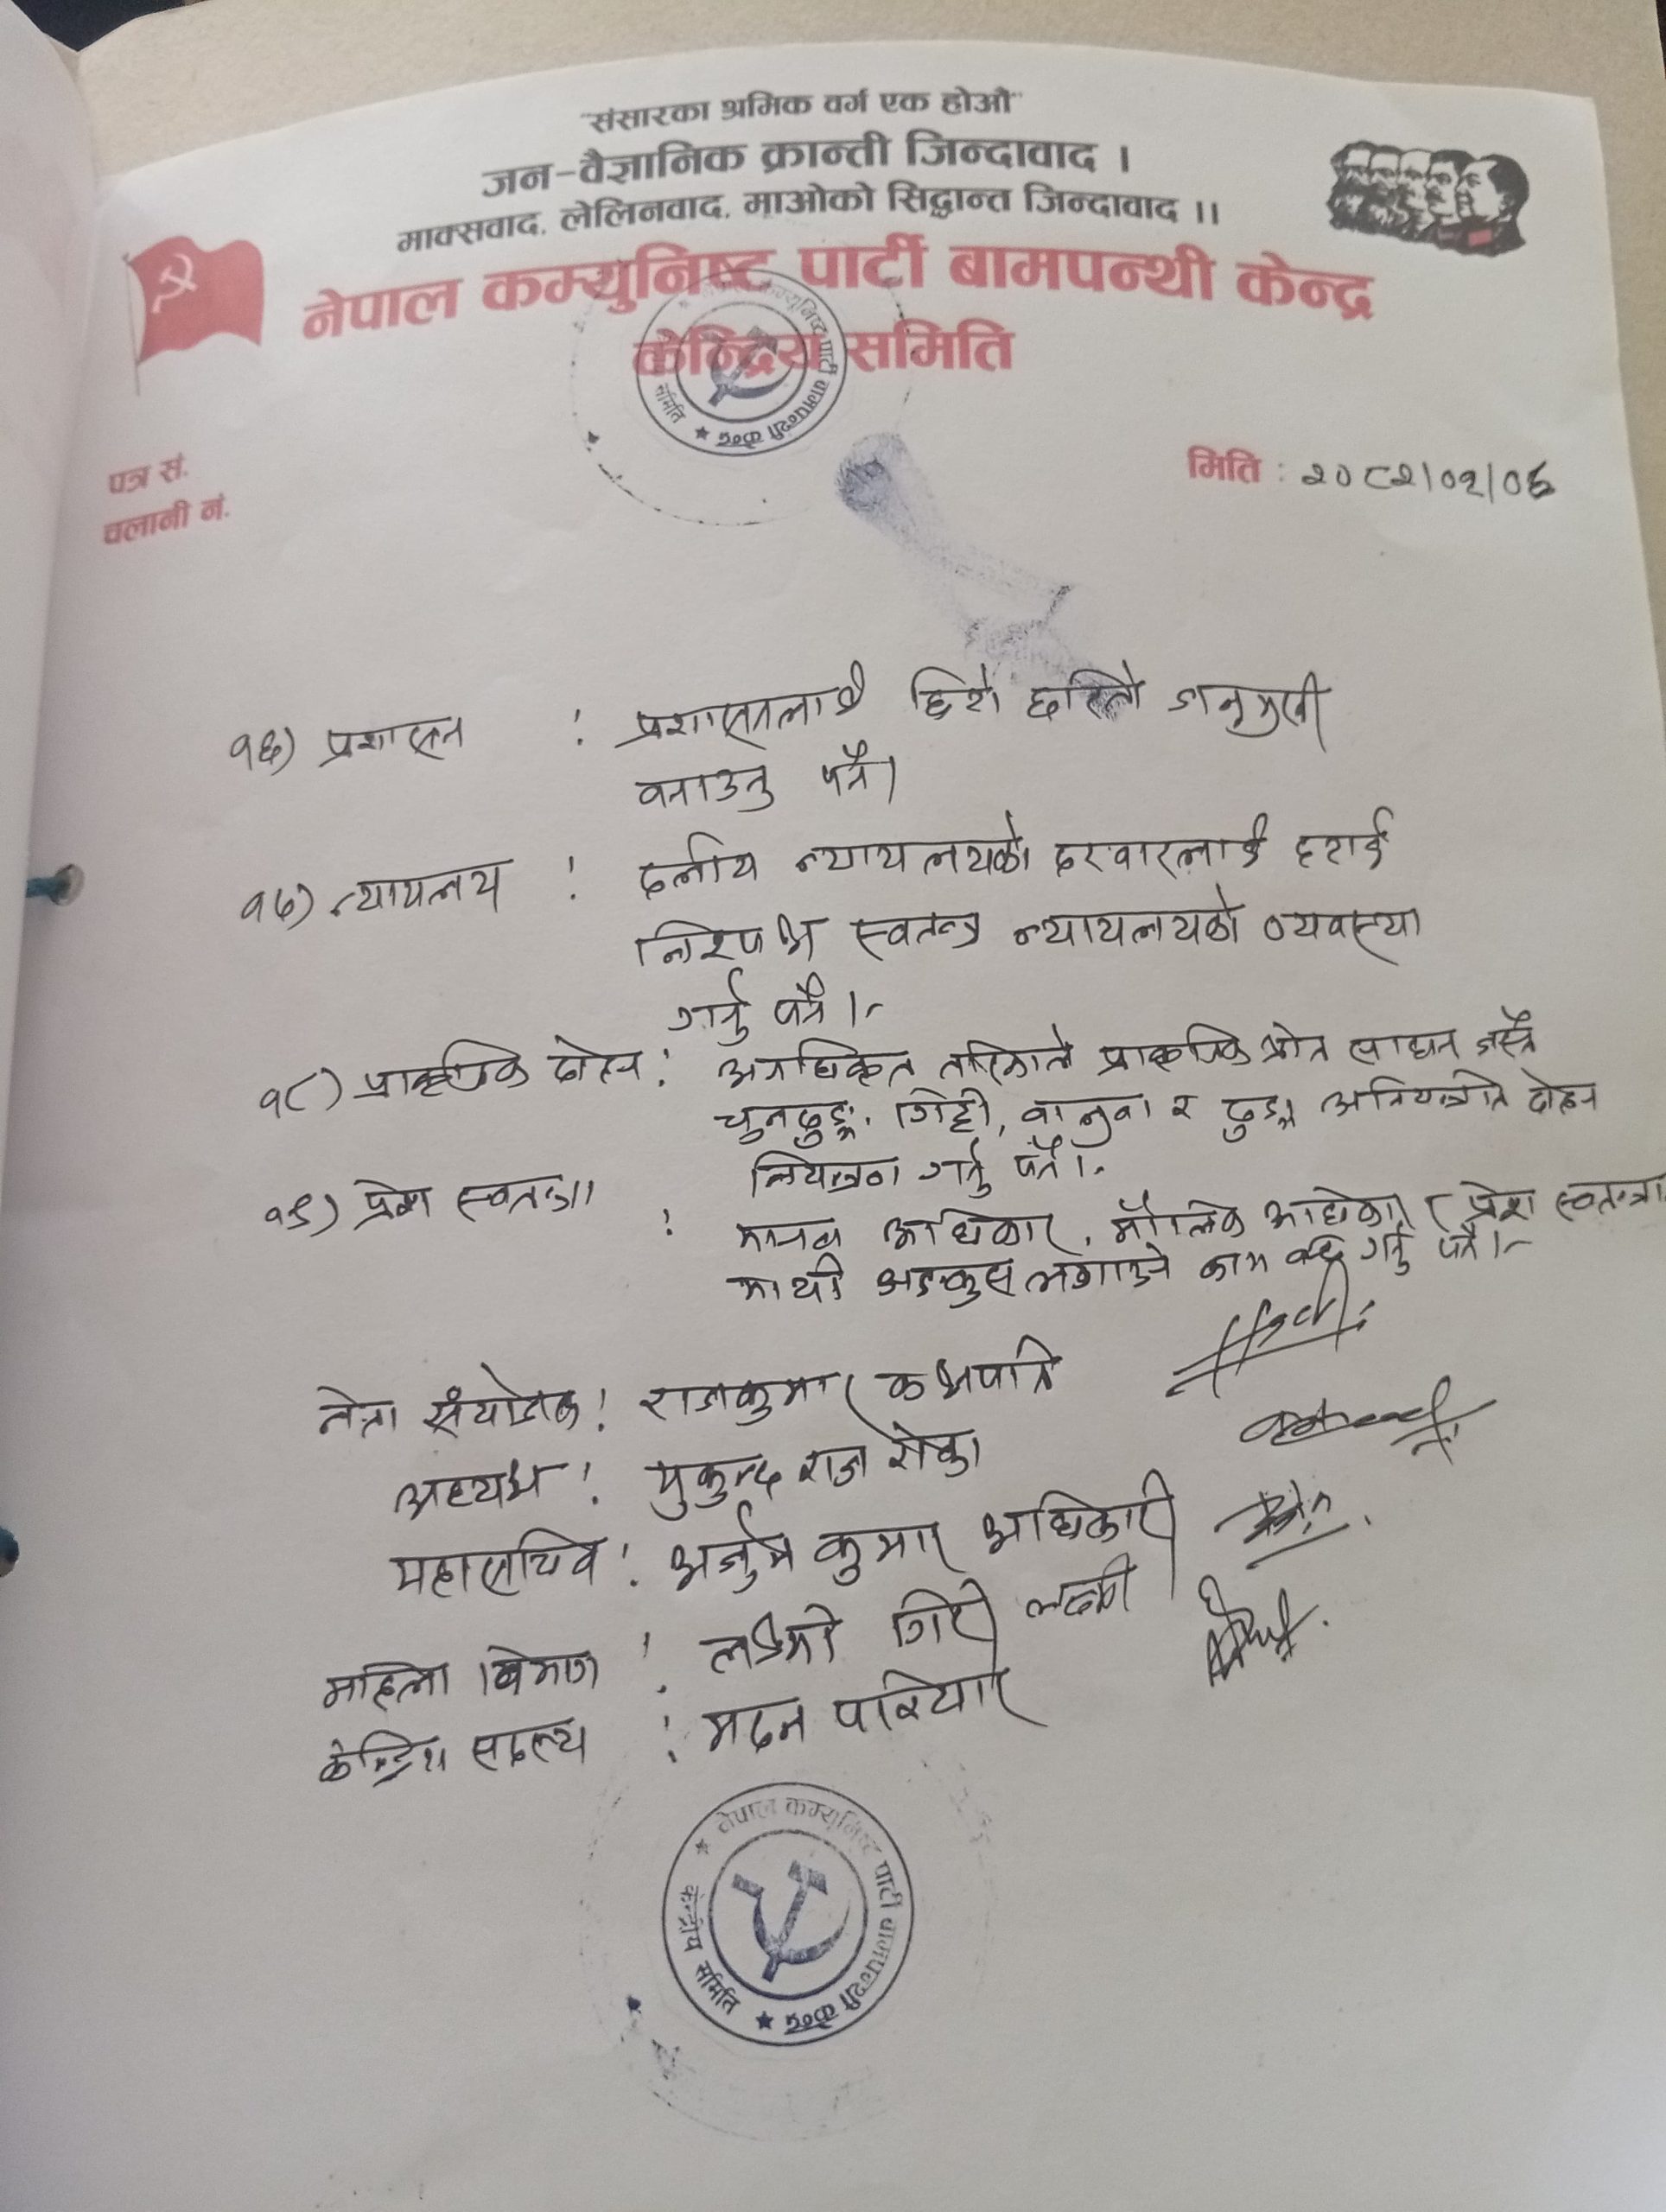 "संसारका श्रमिक वर्ग एक होऔं"
जन-वैज्ञानिक क्रान्ती जिन्दावाद ।
माक्सवाद, लेलिनवाद, माओको सिद्धान्त जिन्दावाद ।।
नेपाल कम्युनिष्ट पार्टी बामपन्थी केन्द्र
केन्द्रिय समिति
पत्र सं.
चलानी नं.
मिति : २०८२/०१/०६
१६) प्रशासन : प्रशासनलाई छिटो छरितो जनमुखी
वनाउनु पर्ने।
१७) न्यायलय : दलीय न्यायलयको दरवारलाई हटाई
निश्पक्ष स्वतन्त्र न्यायलयको व्यवस्था
गर्नु पर्ने।-
१८) प्राकृतिक दोहन : अनाधिकृत तरिकाले प्राकृतिक श्रोत साधन जस्तै
चुनढुङ्गा, गिट्टी, वालुवा र ढुङ्गा अनियन्त्रीत दोहन
नियन्त्रण गर्नु पर्ने।-
१९) प्रेश स्वतन्त्रता : मानव अधिकार, मौलिक अधिकार र प्रेश स्वतन्त्रता
माथी अङकुस लगाउने काम वन्द गर्नु पर्ने।-
नेता संयोजक : राजकुमार कक्षपति
अध्यक्ष : मुकुन्द राज रोका
महासचिव : अर्जुन कुमार अधिकारी
महिला विभाग : लक्ष्मी गिरी लक्ष्मी
केन्द्रिय सदस्य : मदन परियार
नेपाल कम्यूनिष्ट पार्टी वामपन्थी केन्द्र
केन्द्रीय समिति